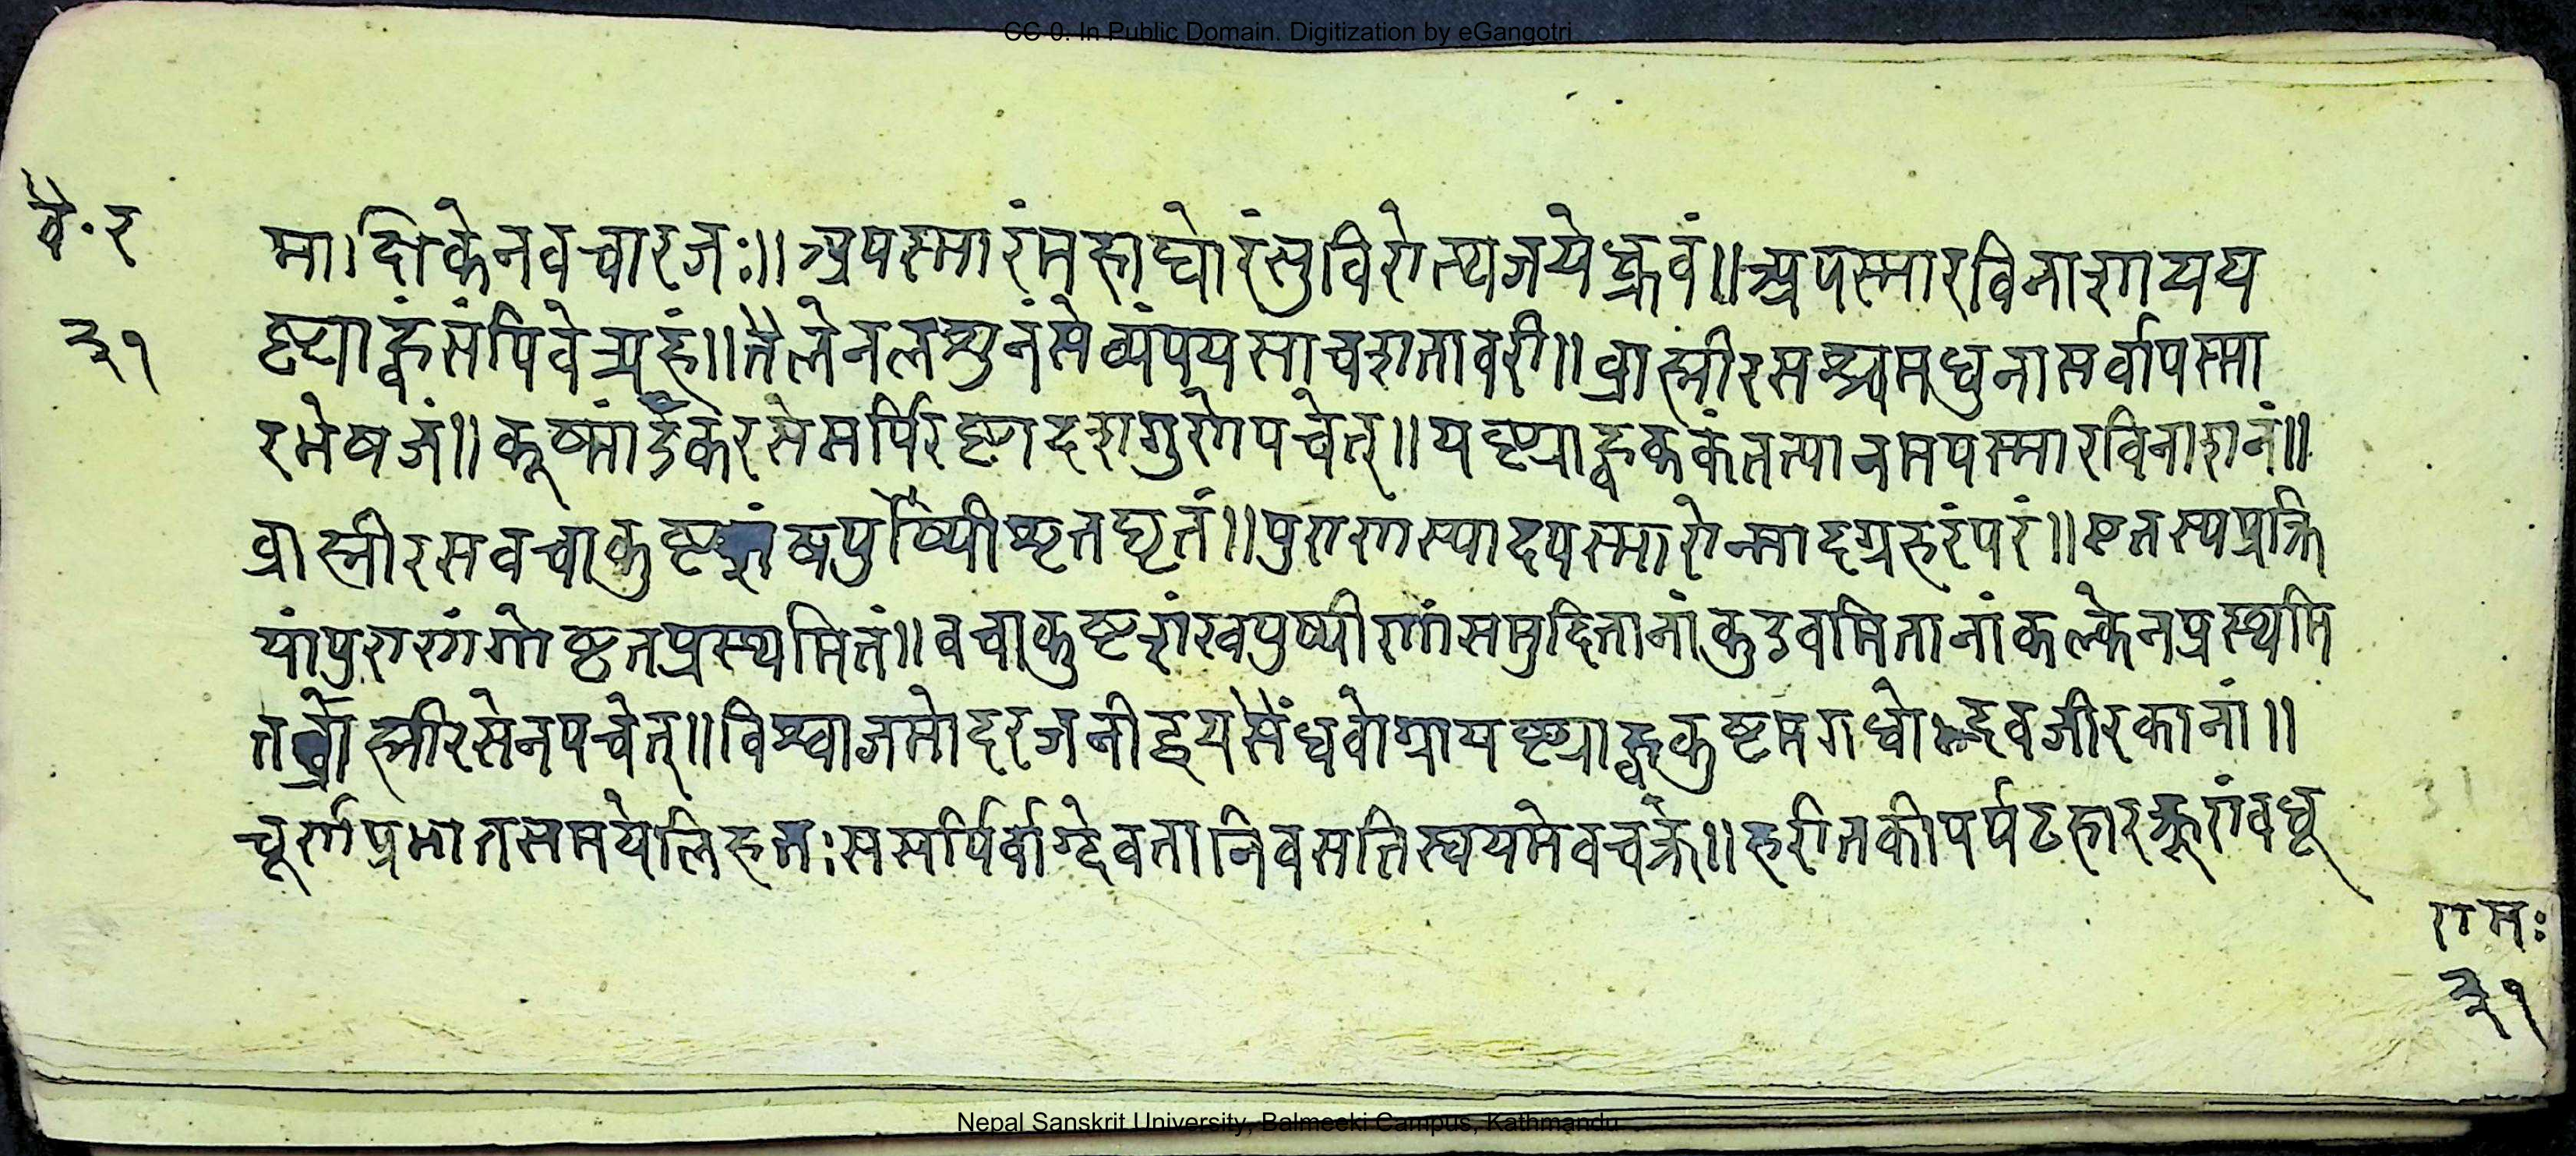 CC-0. In Public Domain. Digitization by eGangotri
वै.र
३१
माक्षिकेनवचारजः॥अपस्मारंमहाघोरंसुचिरोत्थंजयेद्ध्रुवं॥अपस्मारविनाशायय
ष्ट्याह्वंसंपिवेत्र्यहं॥तैलेनलशुनंसेव्यंपयसाचशतावरी॥व्राह्मीरसश्चमधुनासर्वापस्मा
रभेषजं॥कूष्मांडकरसेसर्पिरष्टादशगुणेपचेत्॥यष्ट्याह्वकल्कंतत्पानमपस्मारविनाशनं॥
व्राह्मीरसवचाकुष्टशंखपुष्पीशृतघृतं॥पुराणंस्यादपस्मारोन्मादग्रहहरंपरं॥एतस्यप्रक्रि
यांपुराणंगोघृतप्रस्थमितं॥वचाकुष्टशंखपुष्पीणांसमुदितानांकुडवमितानांकल्केनप्रस्थमि
तव्राह्मीरसेनपचेत्॥विश्वाजमोदरजनीद्वयसैंधवोग्रायष्ट्याह्वकुष्टमगधोद्भवजीरकानां॥
चूर्णंप्रभातसमयेलिहतःससर्पिर्वाग्देवतानिवसतिस्वयमेववक्त्रे॥हरीतकीपर्पट
रामः
३१
Nepal Sanskrit University, Balmeeki Campus, Kathmandu